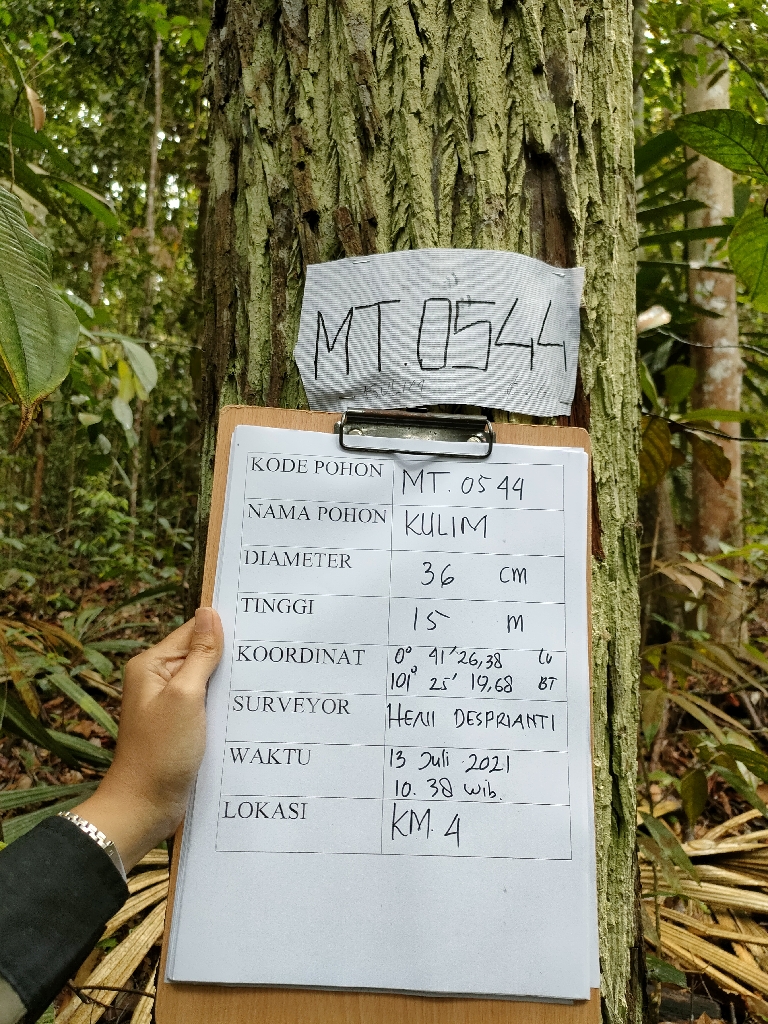 MT.0544
KODE POHON MT. 0544
NAMA POHON KULIM
DIAMETER 36 cm
TINGGI 15 m
KOORDINAT 0° 41' 26,38 LU
101° 25' 19,68 BT
SURVEYOR HENI DESPRIANTI
WAKTU 13 Juli 2021
10.38 wib.
LOKASI KM. 4